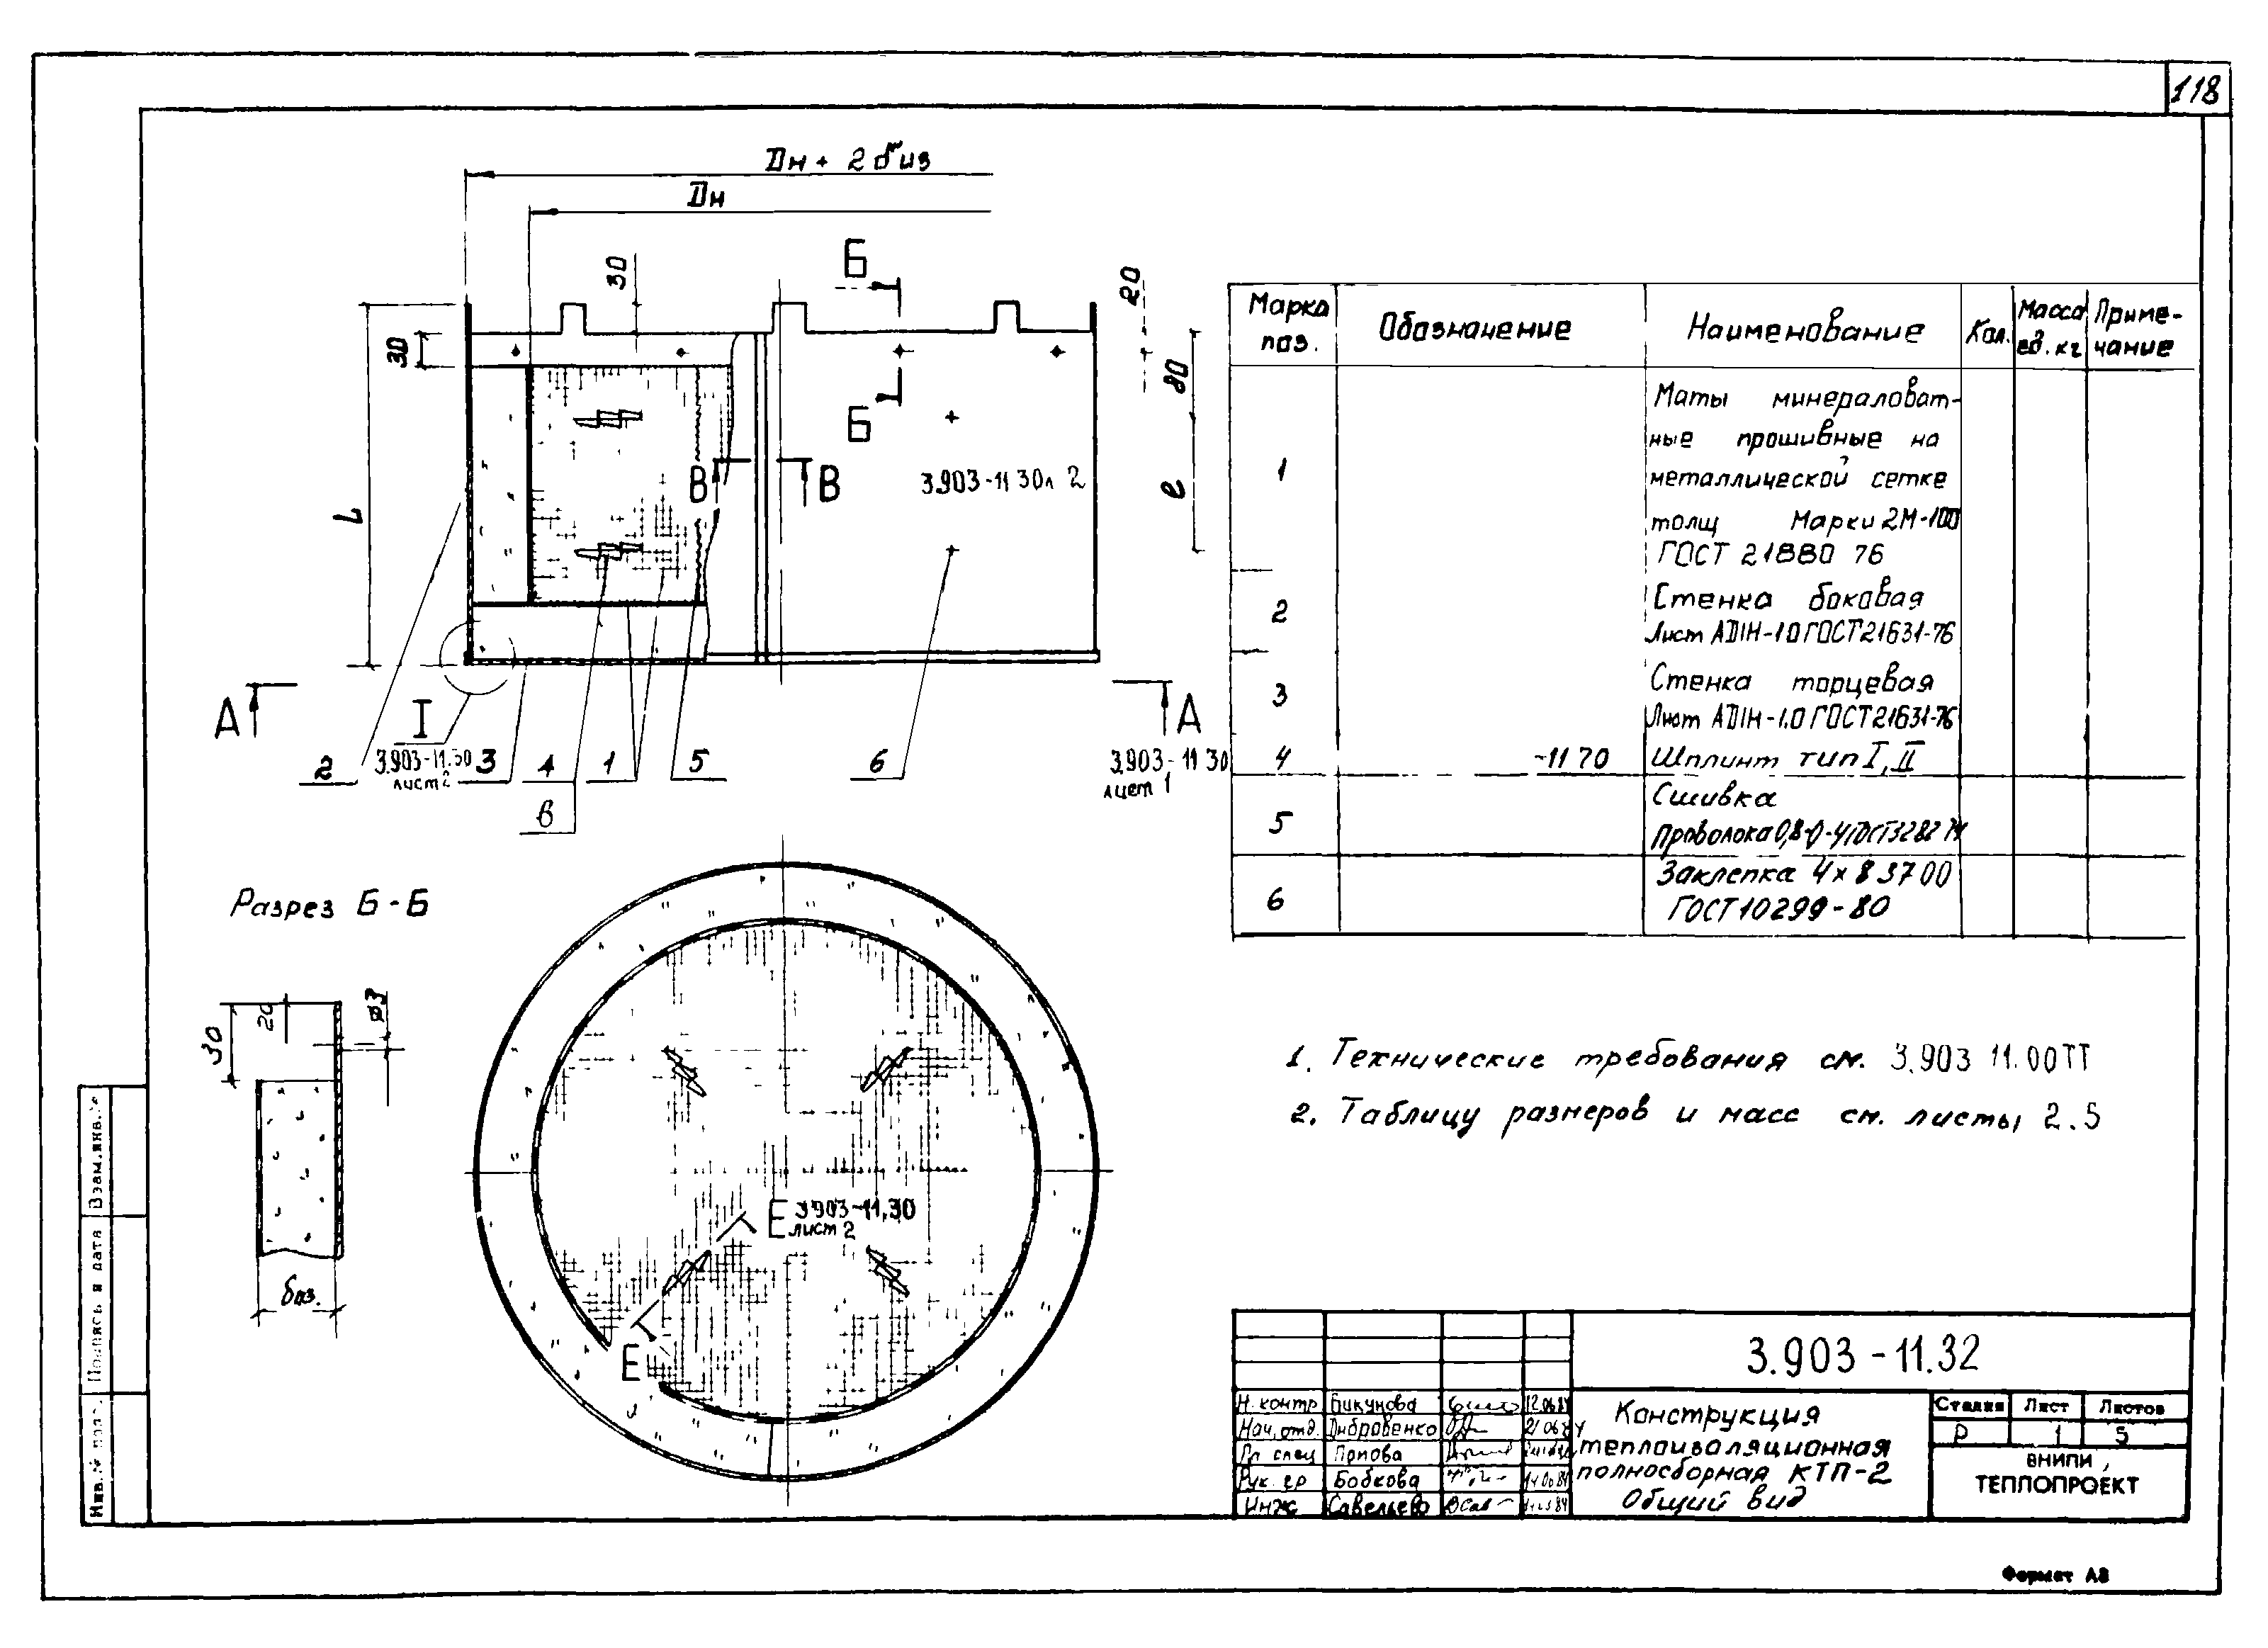 118
Dн + 2 δиз
Dн
30
Б
20
30
80
Б
В
В
3.903-11 30л 2
L
e
А
I
А
2
3.903-11.30
лист 2
3
4
1
5
6
3.903-11 30
лист 1
в
Марка поз.
Обозначение
Наименование
Кол.
Масса ед. кг
Приме-
чание
1
Маты минераловат-
ные прошивные на
металлической сетке
толщ Марки 2М-100
ГОСТ 21880 76
2
Стенка боковая
Лист АД1Н-1.0 ГОСТ 21631-76
3
Стенка торцевая
Лист АД1Н-1.0 ГОСТ 21631-76
4
-11 70
Шплинт тип I, II
5
Сшивка
Проволока 0,8-О-Ч ГОСТ 3282 74
6
Заклепка 4х8 37 00
ГОСТ 10299-80
Разрез Б-Б
30
20
ø3
δиз.
Е
3.903-11.30
лист 2
Е
1. Технические требования см. 3.903 11.00ТТ
2. Таблицу размеров и масс см. листы 2.5
Взам.инв.№
Подпись и дата
Инв.№ подл.
3.903-11.32
Н. контр Бикунова 12.06.84
Нач. отд. 21.06.84
Гл спец Попова
Рук. гр Бобкова
Инж Савельева
Конструкция
теплоизоляционная
полносборная КТП-2
Общий вид
Стадия Лист Листов
Р 1 5
ВНИПИ
ТЕПЛОПРОЕКТ
Формат А3